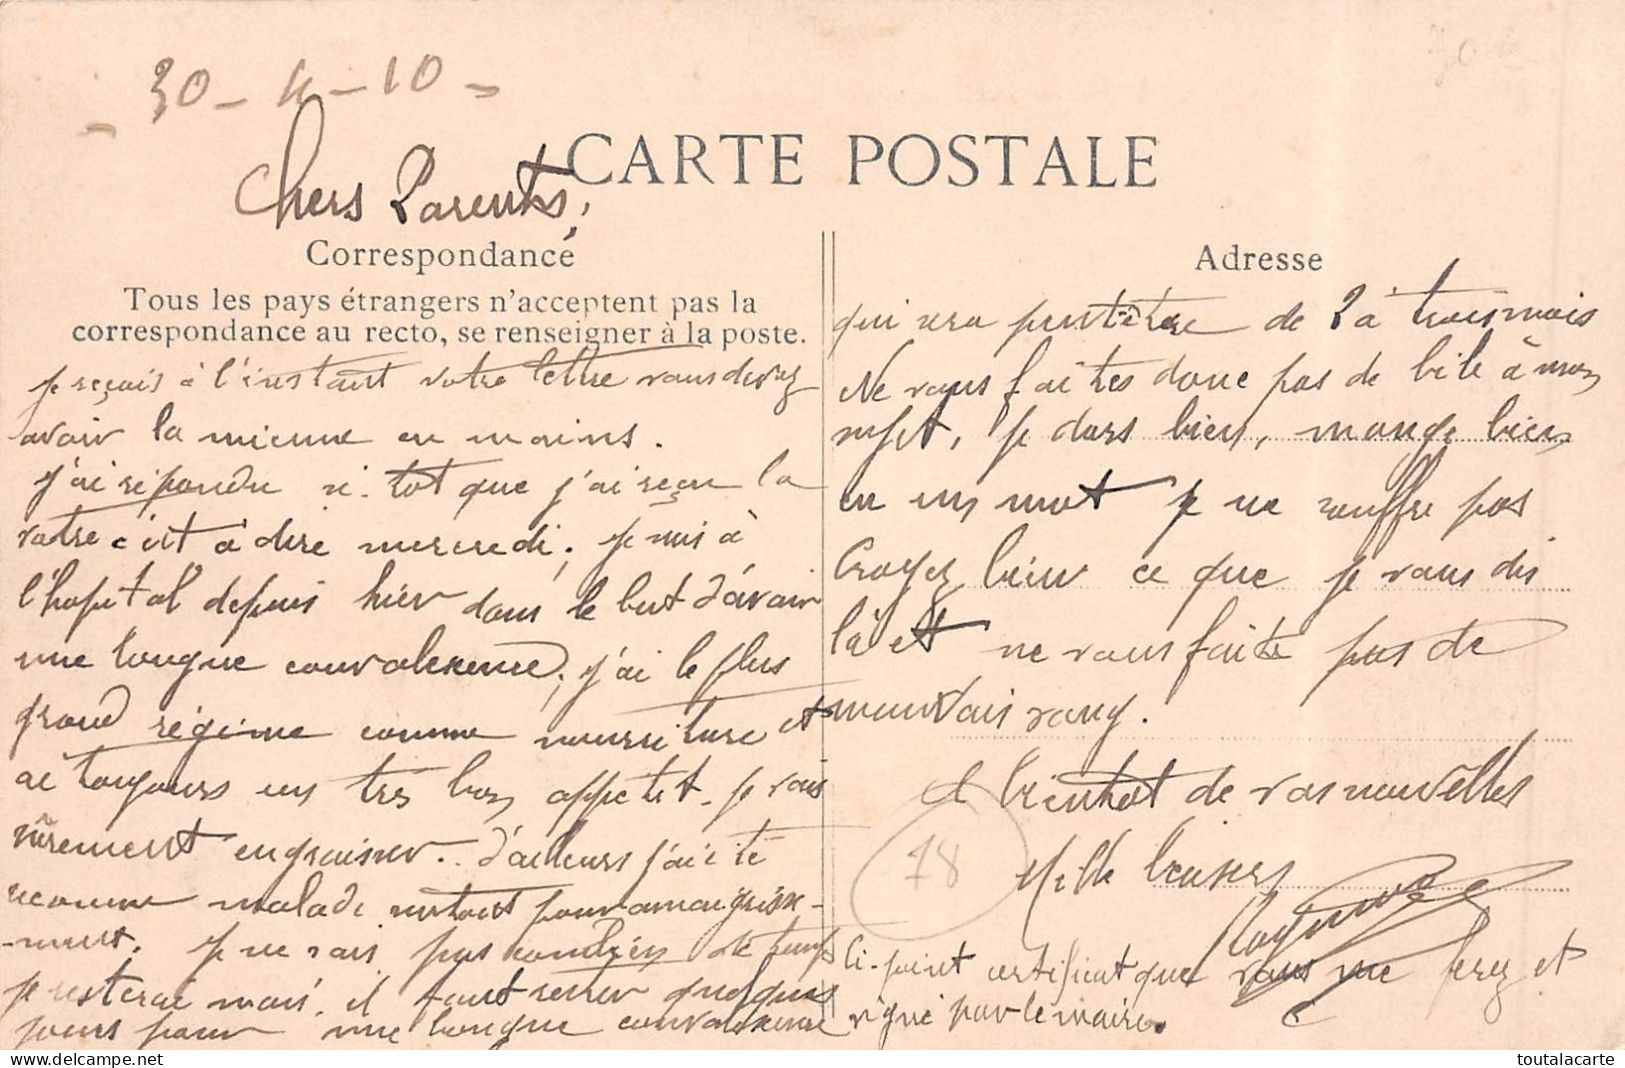 - 30 - 4 - 10 -
CARTE POSTALE
Chers Parents,
Correspondance
Tous les pays étrangers n'acceptent pas la
correspondance au recto, se renseigner à la poste.
je reçois à l'instant votre lettre vous devez
avoir la mienne en mains.
J'ai répondu si-tôt que j'ai reçu la
votre c'est à dire mercredi. Je suis à
l'hopital depuis hier dans le but d'avoir
une longue convalescence, j'ai le plus
grand régime comme nourriture et
ai toujours un très bon appetit. je vais
sûrement engraisser.. d'ailleurs j'ai été
reconnu malade surtout pour amaigrisse-
-ment. Je ne sais pas combien de temps
je resterai mais il faut
jours pour une longue convalescence
Adresse
qui sera peut-être de 2 à trois mois
Ne vous faites donc pas de bile à mon
sujet, je dors bien, mange bien
en un mot je ne souffre pas
Croyez bien ce que je vous dis
là et ne vous faite pas de
mauvais sang.
A bientôt de vos nouvelles
Mille baisers
78
Ci-joint certificat que vous me ferez et
signé par le maire.
toutalacarte